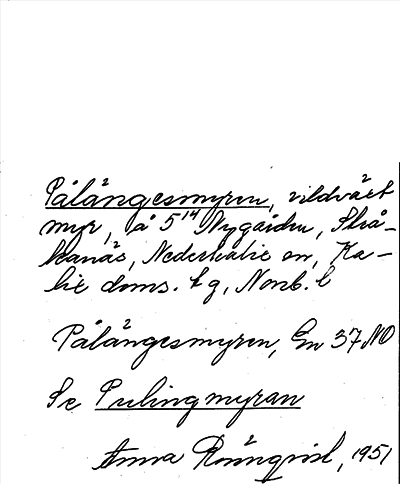 Pålångesmyren, vildväxt
myr, å 5¹⁴ Nygården, Strå-
kanäs, Nederkalix sn, Ka-
lix doms. tg, Norrb. l
Pålångesmyren, En 37 NO
Se Pulingmyran
Anna Rönnqvist, 1951